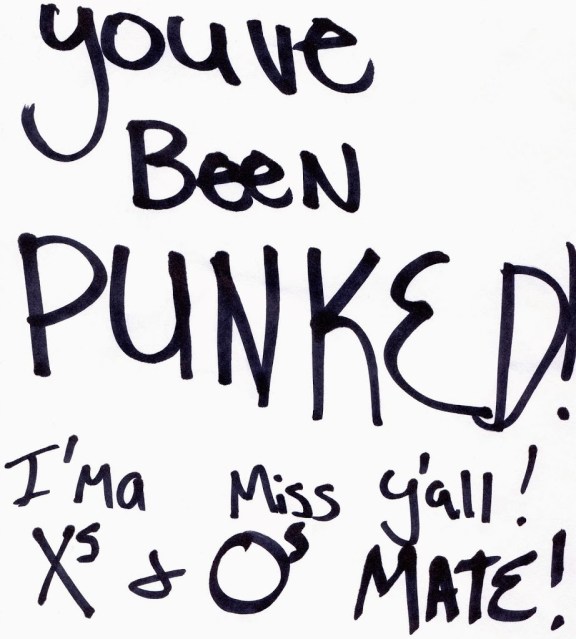 youve
Been
PUNKED!
I'ma Miss y'all!
Xs & Os MATE!